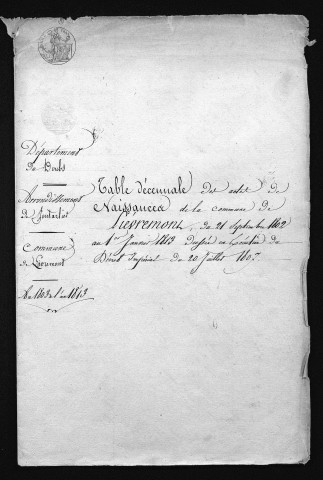 Département
du Doubs
Arrondissement
de Pontarlier
Commune
de Lievremont
An 1803 à l'an 1813
Table décennale des actes de
Naissances de la commune de
Lievremont, du 21 Septembre 1802
au 1er Janvier 1813 Dressée en exécution du
Décret Impérial du 20 Juillet 1807.